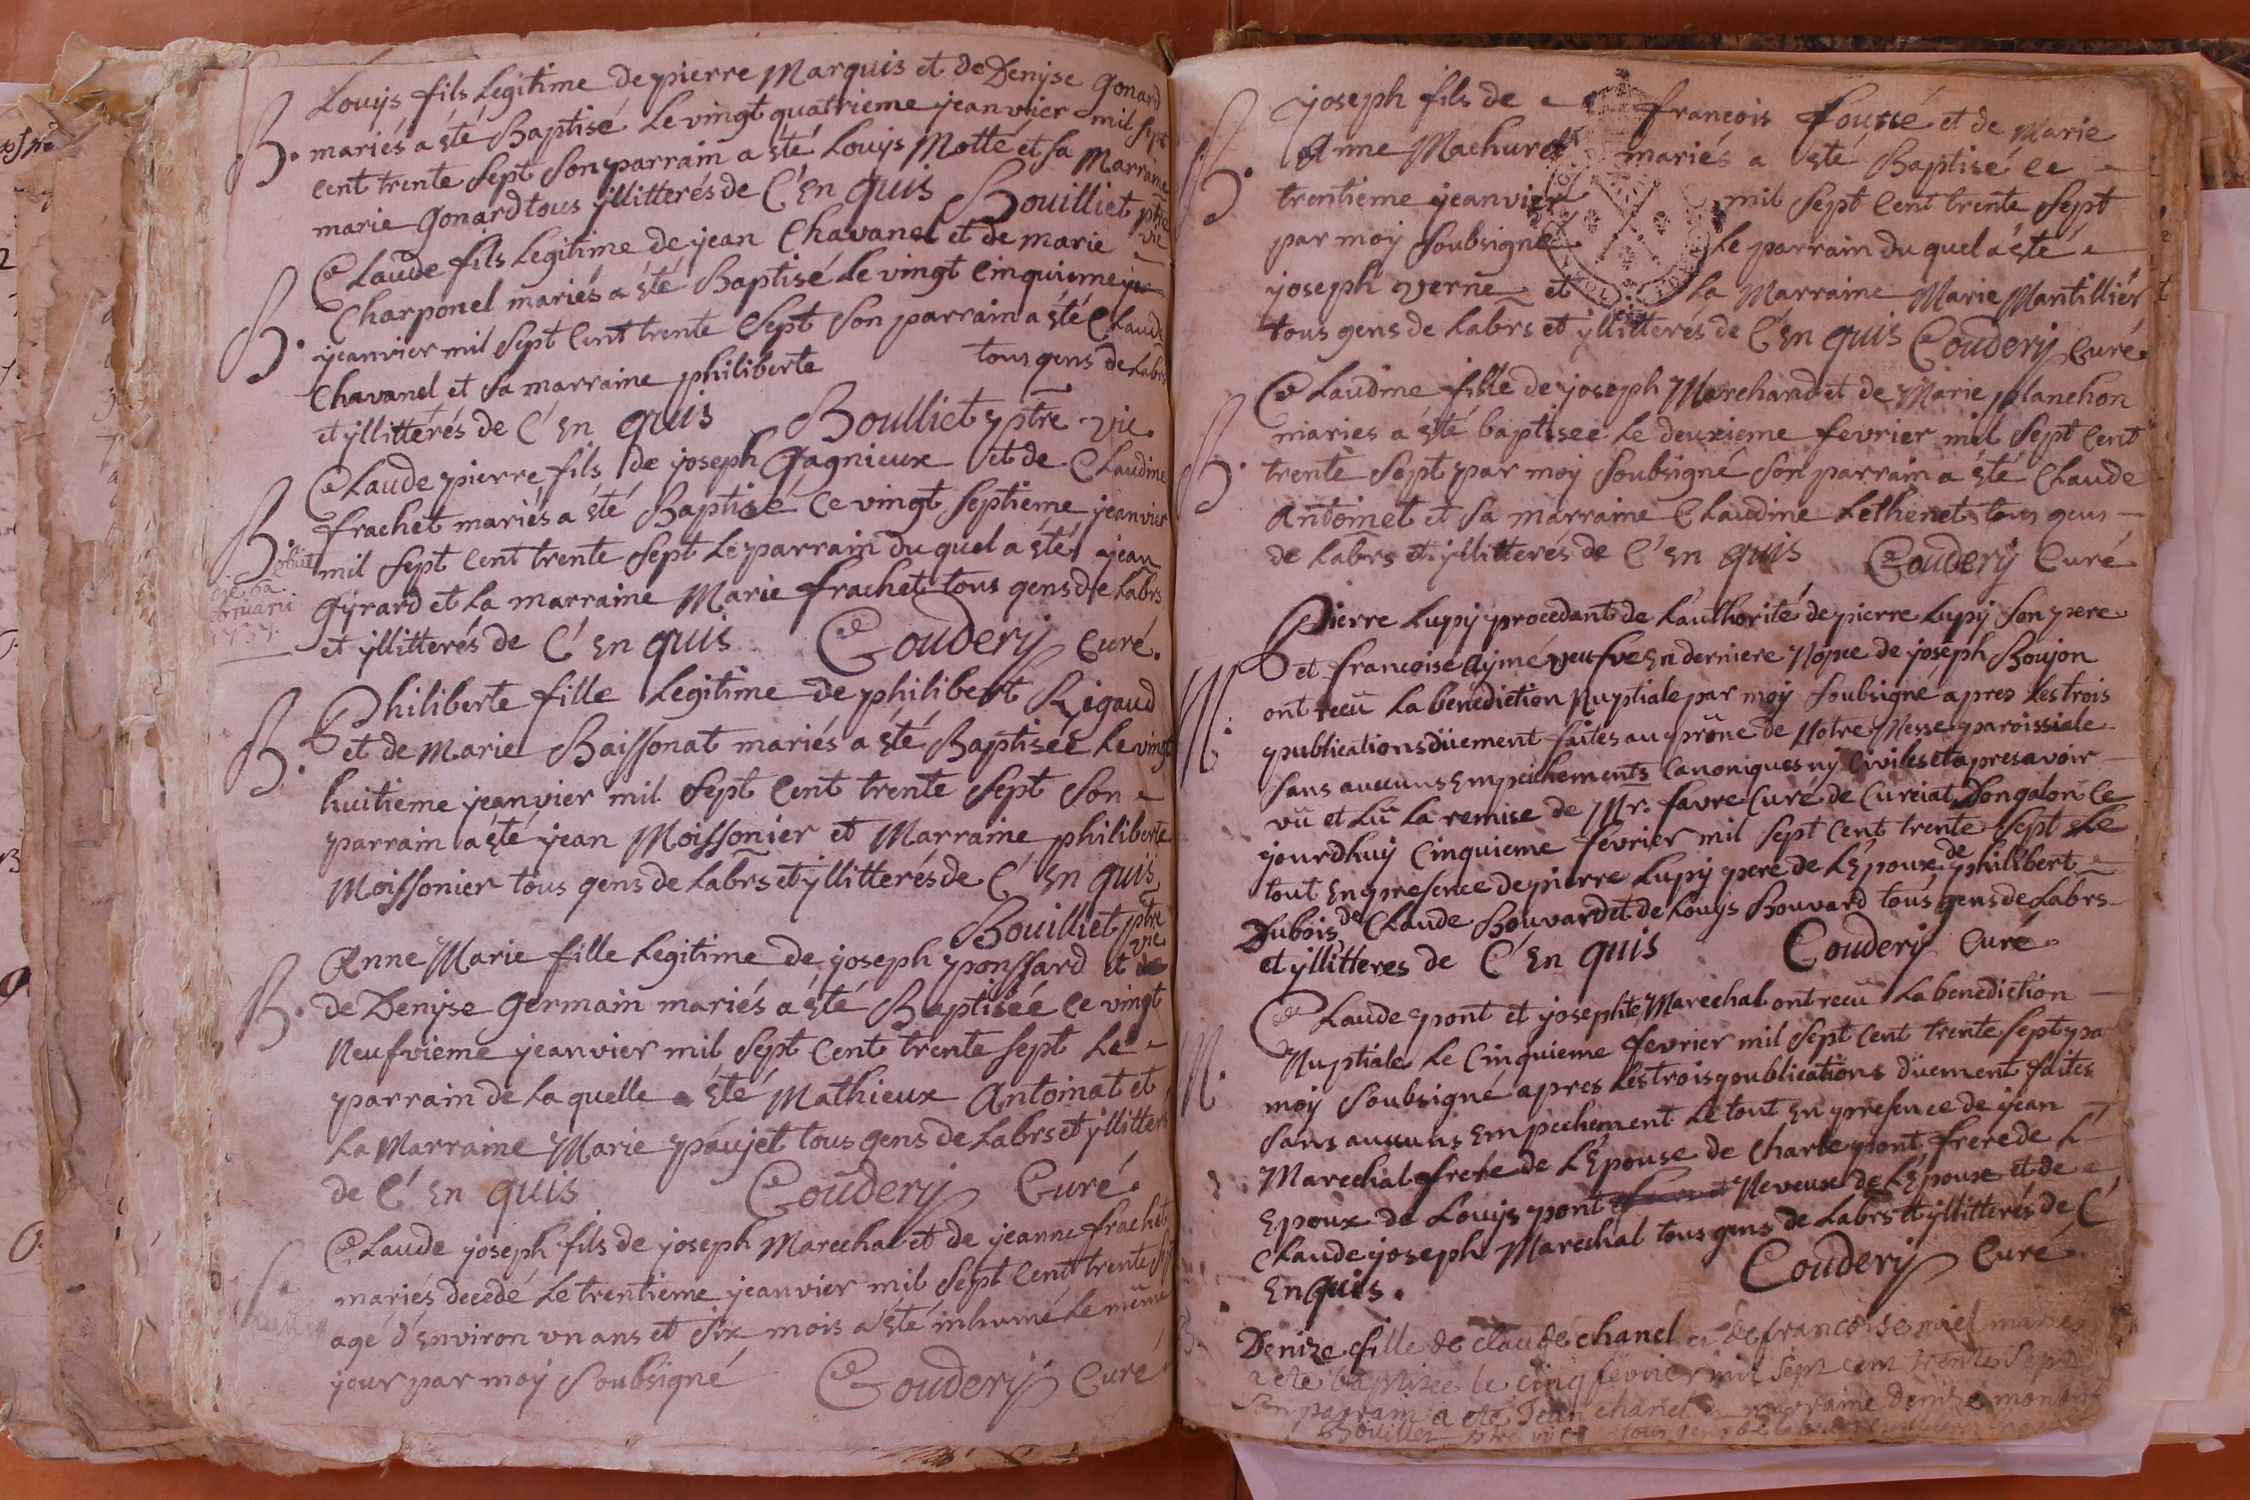 Louys fils legitime de pierre Marquis et de Denyse Gonard
B. mariés a été Baptisé le vingt quatrieme jeanvier mil sept
cent trente sept son parrain a été Louys Motte et sa Marraine
marie Gonard tous yllitterés de C'en quis Bouilliet ptre
vic
Claude fils legitime de jean Chavanel et de marie
B. Charponel mariés a été Baptisé le vingt cinquieme
jeanvier mil sept cent trente sept son parrain a été Claude
Chavanel et sa marraine philiberte tous gens de labrs
et yllitterés de C'en quis Boulliet ptre vic.
Claude pierre fils de joseph Gagnieux et de Claudine
B. frachet mariés a été Baptisé ce vingt septieme jeanvier
mil sept cent trente sept le parrain du quel a été jean
Gyrard et la marraine Marie frachet tous gens de labrs
et yllitterés de C'en quis Coudery Curé.
Philiberte fille legitime de philibert Rigaud
B. et de Marie Baissonat mariés a été Baptisée le vingt
huitieme jeanvier mil sept cent trente sept son
parrain a été jean Moissonier et Marraine philiberte
Moissonier tous gens de labrs et yllitterés de C'en quis
Bouilliet ptre
vic
Anne Marie fille legitime de joseph ponssard et
B. de Denyse Germain mariés a été Baptisée ce vingt
neufvieme jeanvier mil sept cent trente sept le
parrain de la quelle a été Mathieux Antoinat et
la Marraine Marie paujet tous gens de labrs et yllitterés
de C'en quis Coudery Curé.
Claude joseph fils de joseph Marechal et de jeanne frachet
mariés decedé le trentieme jeanvier mil sept cent trente
agé d'environ un ans et six mois a été inhumé le même
jour par moy soubsigné Coudery Curé
joseph fils de francois fousse et de Marie
Anne Machuret mariés a été Baptisé ce
B. trentieme jeanvier mil sept cent trente sept
par moy soubsigné le parrain du quel a été
joseph verne et la Marraine Marie Mantillier
tous gens de labrs et yllitterés de C'en quis Coudery Curé.
Claudine fille de joseph Marchand et de Marie planchon
mariés a été baptisée le deuxieme fevrier mil sept cent
B. trente sept par moy soubsigné son parrain a été Claude
Antoinet et sa marraine Claudine Lethenet tous gens
de labrs et yllitterés de C'en quis Coudery Curé
Pierre Lupy procedant de l'authorité de pierre Lupy son pere
et francoise Aymé veufve en derniere Nopce de joseph Boujon
M. ont reçu la benediction Nuptiale par moy soubsigné apres les trois
publications düement faites au prône de Notre Messe paroissiale
sans aucuns empechements canoniques ny civiles et apres avoir
vü et lü la remise de Mr. favre Curé de Curciat Dongalon ce
jourdhuy cinquieme fevrier mil sept cent trente sept le
tout en presence de pierre Lupy pere de l'Epoux de philibert
Dubois de Claude Bouvard et de Louys Bouvard tous gens de labrs
et yllitteres de C'en quis Coudery Curé.
Claude pont et josephte Marechal ont reçu la benediction
M. Nuptiale le cinquieme fevrier mil sept cent trente sept pa
moy soubsigné apres les trois publications düement faites
sans aucuns empechement le tout en presence de jean
Marechal frere de l'Epouse de Charle pont frere de l'
epoux de Louys pont Neveux de l'Epoux et de
Claude joseph Marechal tous gens de labrs et yllitterés de C'
en quis. Coudery Curé
Denize fille de claude chanel et de francoise miel mariés
a été baptisée le cinq fevrier mil sept cent trente sept
son parrain a été Jean chanel marraine denize
Bouillet ptre vic tous gens de